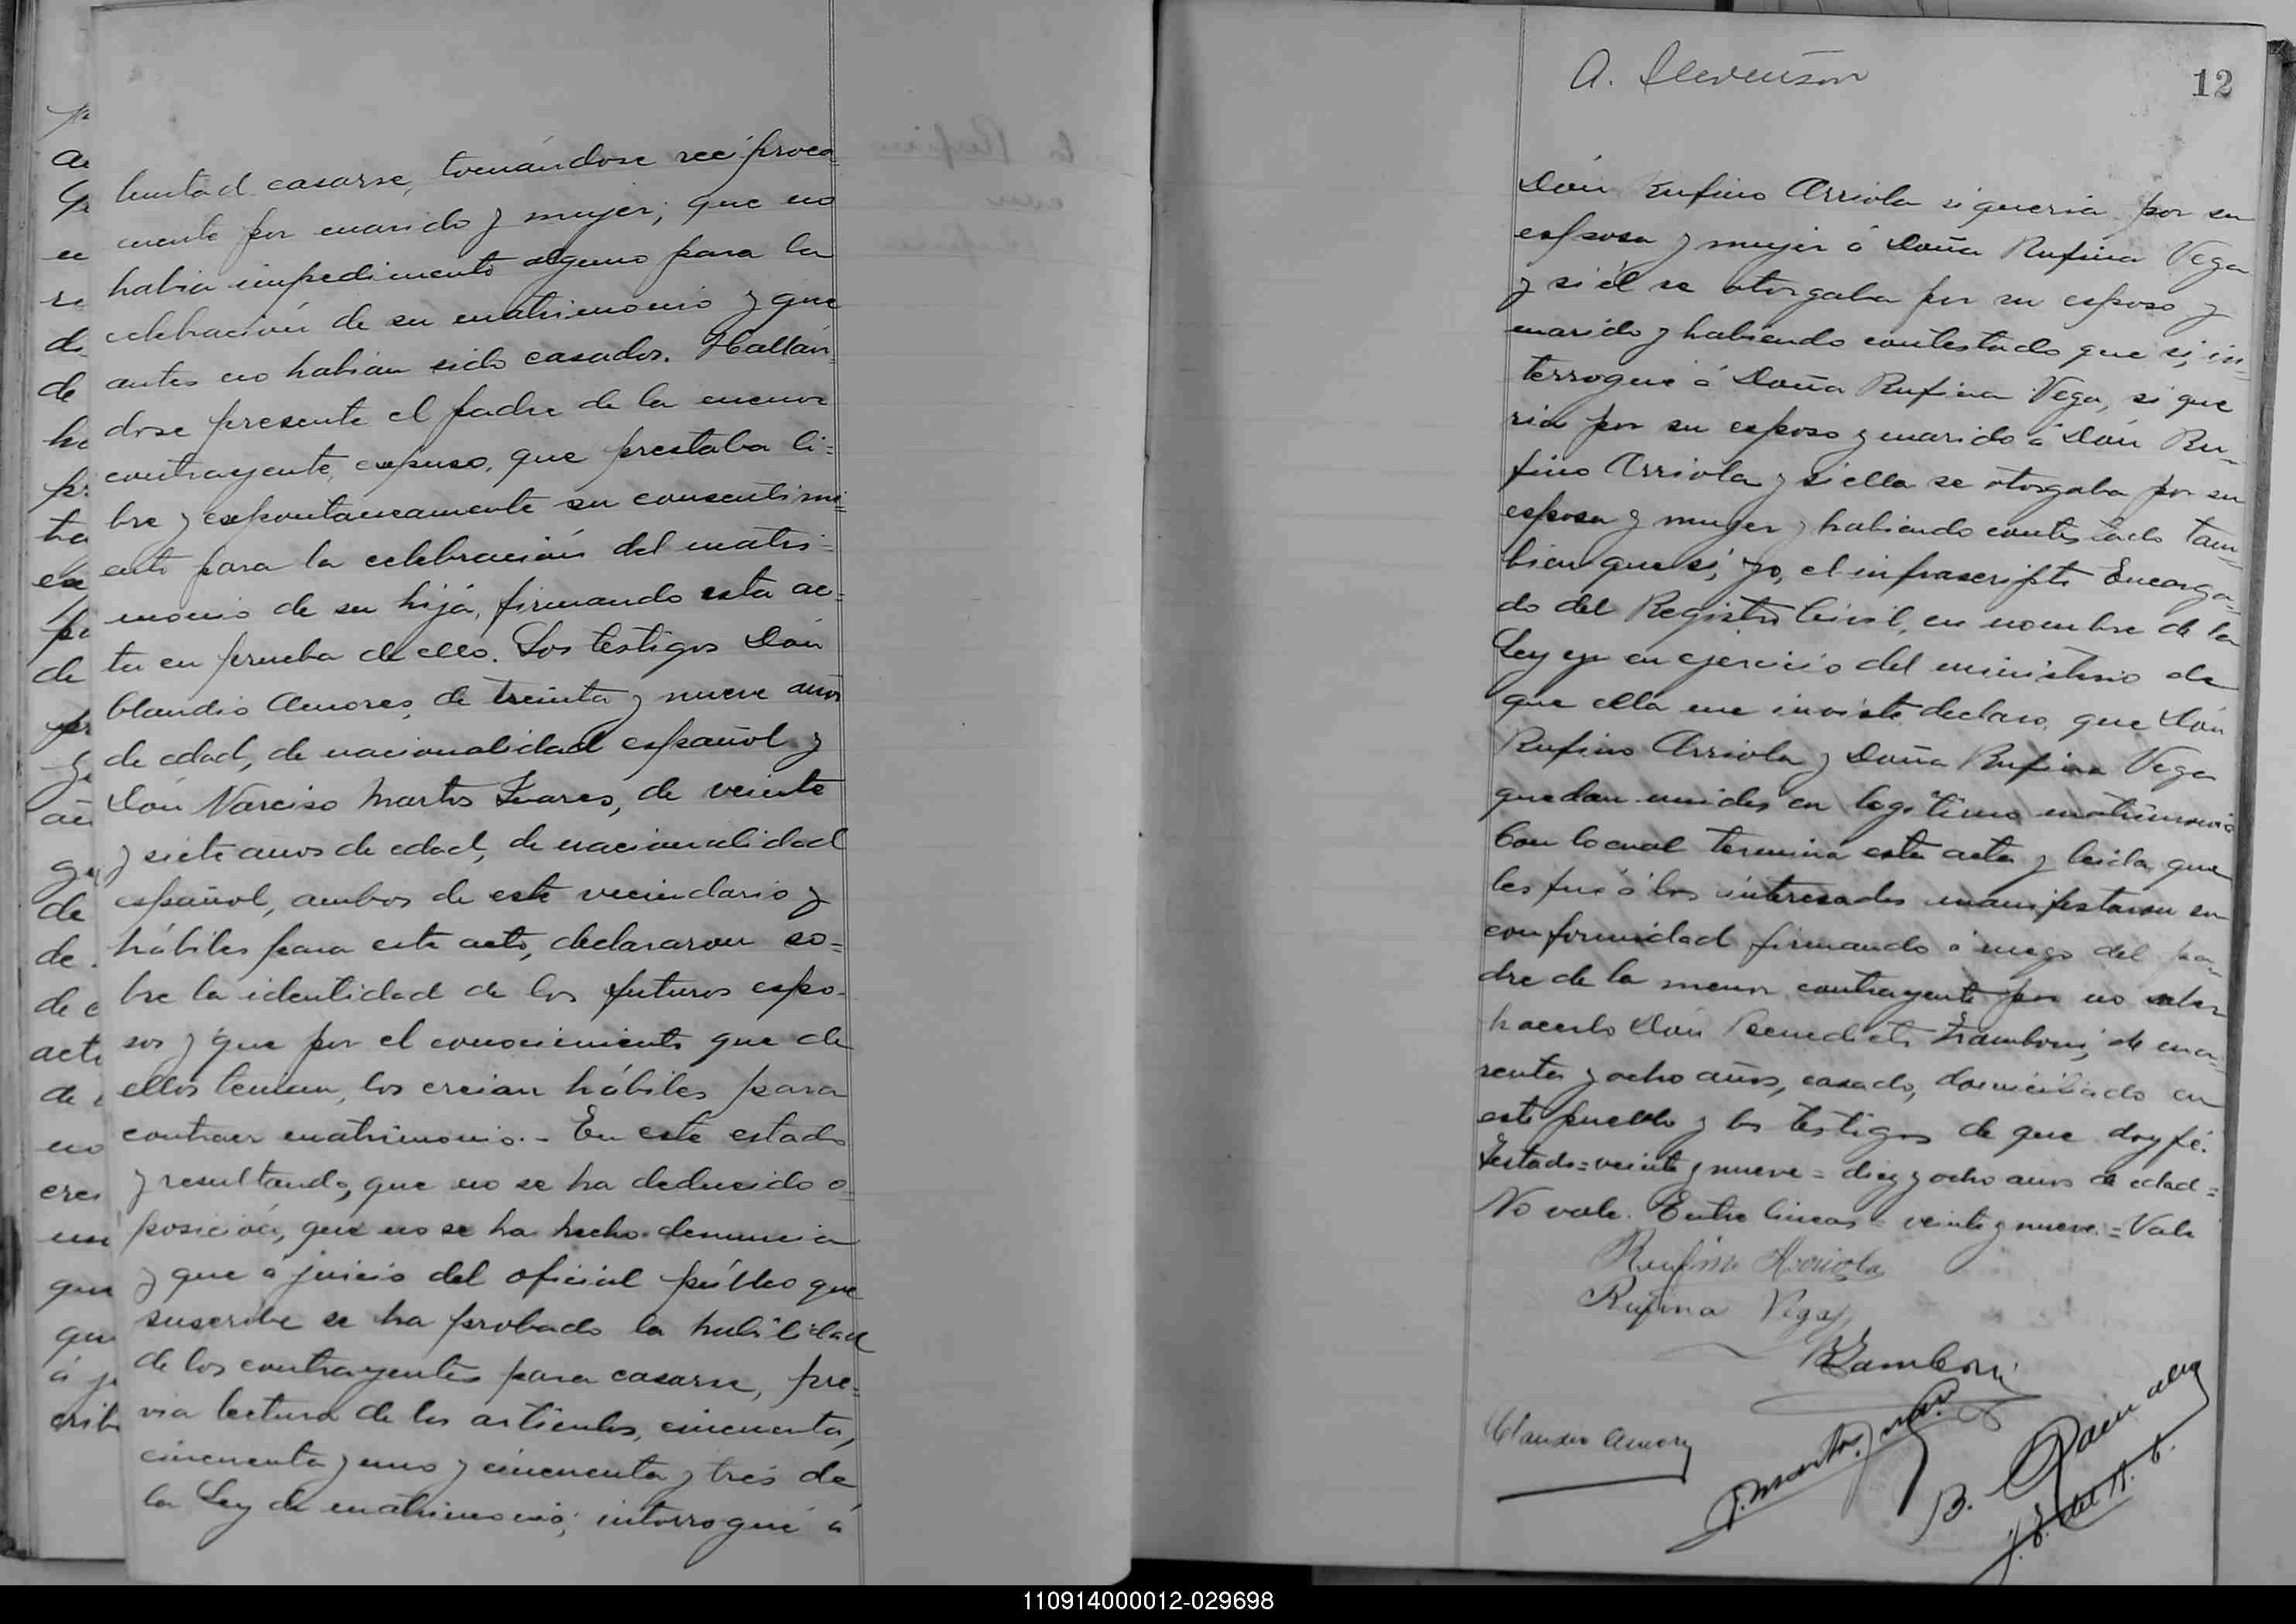 luntad casarse, tomándose recíproca=
mente por marido y mujer; que no
habia impedimento alguno para la
celebración de su matrimonio y que
antes no habian sido casados. Hallán=
dose presente el padre de la menor
contrayente, expuso, que prestaba li=
bre y espontaneamente su consentimi=
ento para la celebración del matri=
monio de su hija, firmando esta ac=
ta en prueba de ello. Los testigos Dón
Claudio Amores, de treinta y nueve años
de edad, de nacionalidad español y
Dón Narciso Martos Juares, de veinte
y siete años de edad, de nacionalidad
español, ambos de este vecindario y
hábiles para este acto, declararon so=
bre la identidad de los futuros espo-
sos y que por el conocimiento que de
ellos tenian, los creian hábiles para
contraer matrimonio.- En este estado
y resultando, que no se ha deducido o=
posición, que no se ha hecho denuncia
y que á juicio del oficial público que
suscribe se ha probado la habilidad
de los contrayentes para casarse, pre=
via lectura de los artículos, cincuenta,
cincuenta y uno y cincuenta y tres de
la Ley de matrimonio; interrogué á
A. Stevenson
12
Dón Rufino Arriola si queria por su
esposa y mujer á Doña Rufina Vega
y si él se otorgaba por su esposo y
marido y habiendo contestado que si, in=
terrogué á Doña Rufina Vega, si que
ria por su esposo y marido á Dón Ru=
fino Arriola y si ella se otorgaba por su
esposa y mujer y habiendo contestado tam=
bien que si, yo, el infrascripto Encarga=
do del Registro Civil, en nombre de la
Ley y en ejercicio del ministerio de
que ella me inviste, declaro, que Dón
Rufino Arriola y Doña Rufina Vega
quedan unidos en legítimo matrimonio
Con lo cual terminó esta acta y leida que
les fué á los interesados manifestaron su
conformidad firmando á ruego del pa=
dre de la menor contrayente por no saber
hacerlo Dón Benedicto Zamboni, de cua=
renta y ocho años, casado, domiciliado en
este pueblo y los testigos de que doy fé.
Testado=veinte y nueve=diez y ocho años de edad=
No vale. Entre lineas=veinte y nueve.=Vale
Rufino Arriola
Rufina Vega
B Zamboni
Claudio Amores
B.
110914000012-029698